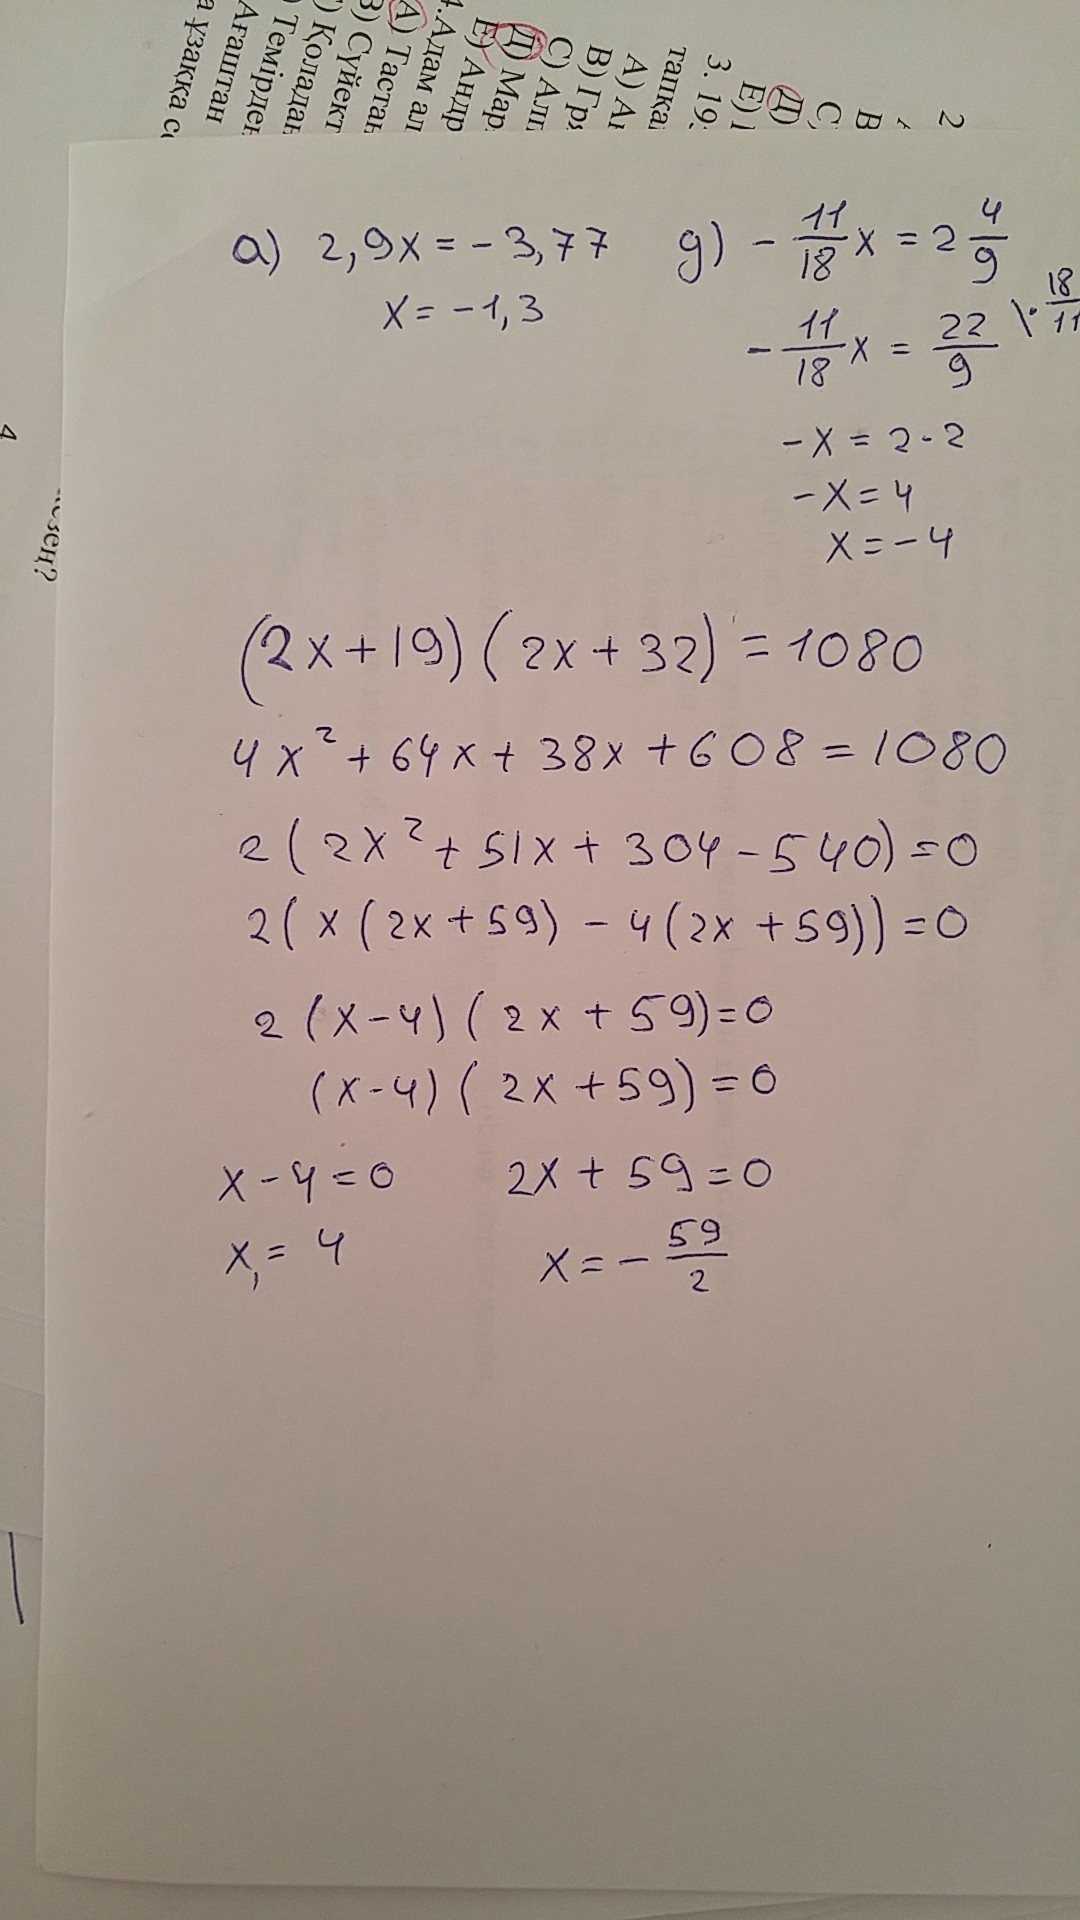 2
B
C
Д)
E)
3. 19
тапқа
A) А
B) Гр
C) Алп
Д) Мар
E) Андр
4. Адам ал
A) Тастан
B) Сүйект
) Қоладан
) Темірден
Ағаштан
а ұзаққа с
4
а) 2,9x = - 3,77
x = -1,3
g) - 11/18 x = 2 4/9
- 11/18 x = 22/9 \· 18/11
- x = 2 · 2
- x = 4
x = - 4
(2x + 19) (2x + 32) = 1080
4x² + 64x + 38x + 608 = 1080
2 ( 2x² + 51x + 304 - 540) = 0
2( x (2x + 59) - 4 (2x + 59)) = 0
2 (x - 4) ( 2x + 59) = 0
(x - 4) ( 2x + 59) = 0
x - 4 = 0 2x + 59 = 0
x₁ = 4 x = - 59/2